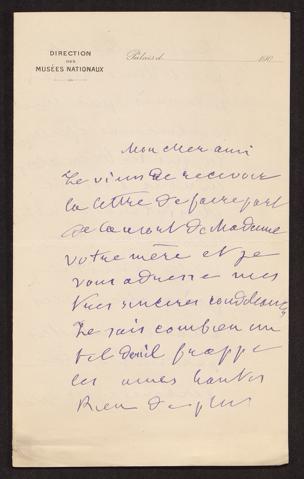 DIRECTION
DES
MUSÉES NATIONAUX
Palais d 190
Mon cher ami
Je viens de recevoir
la lettre de faire part
de la mort de Madame
votre mère et je
vous adresse mes
très sincères condoléances
Je sais combien un
tel deuil frappe
les âmes hautes
Rien de plus